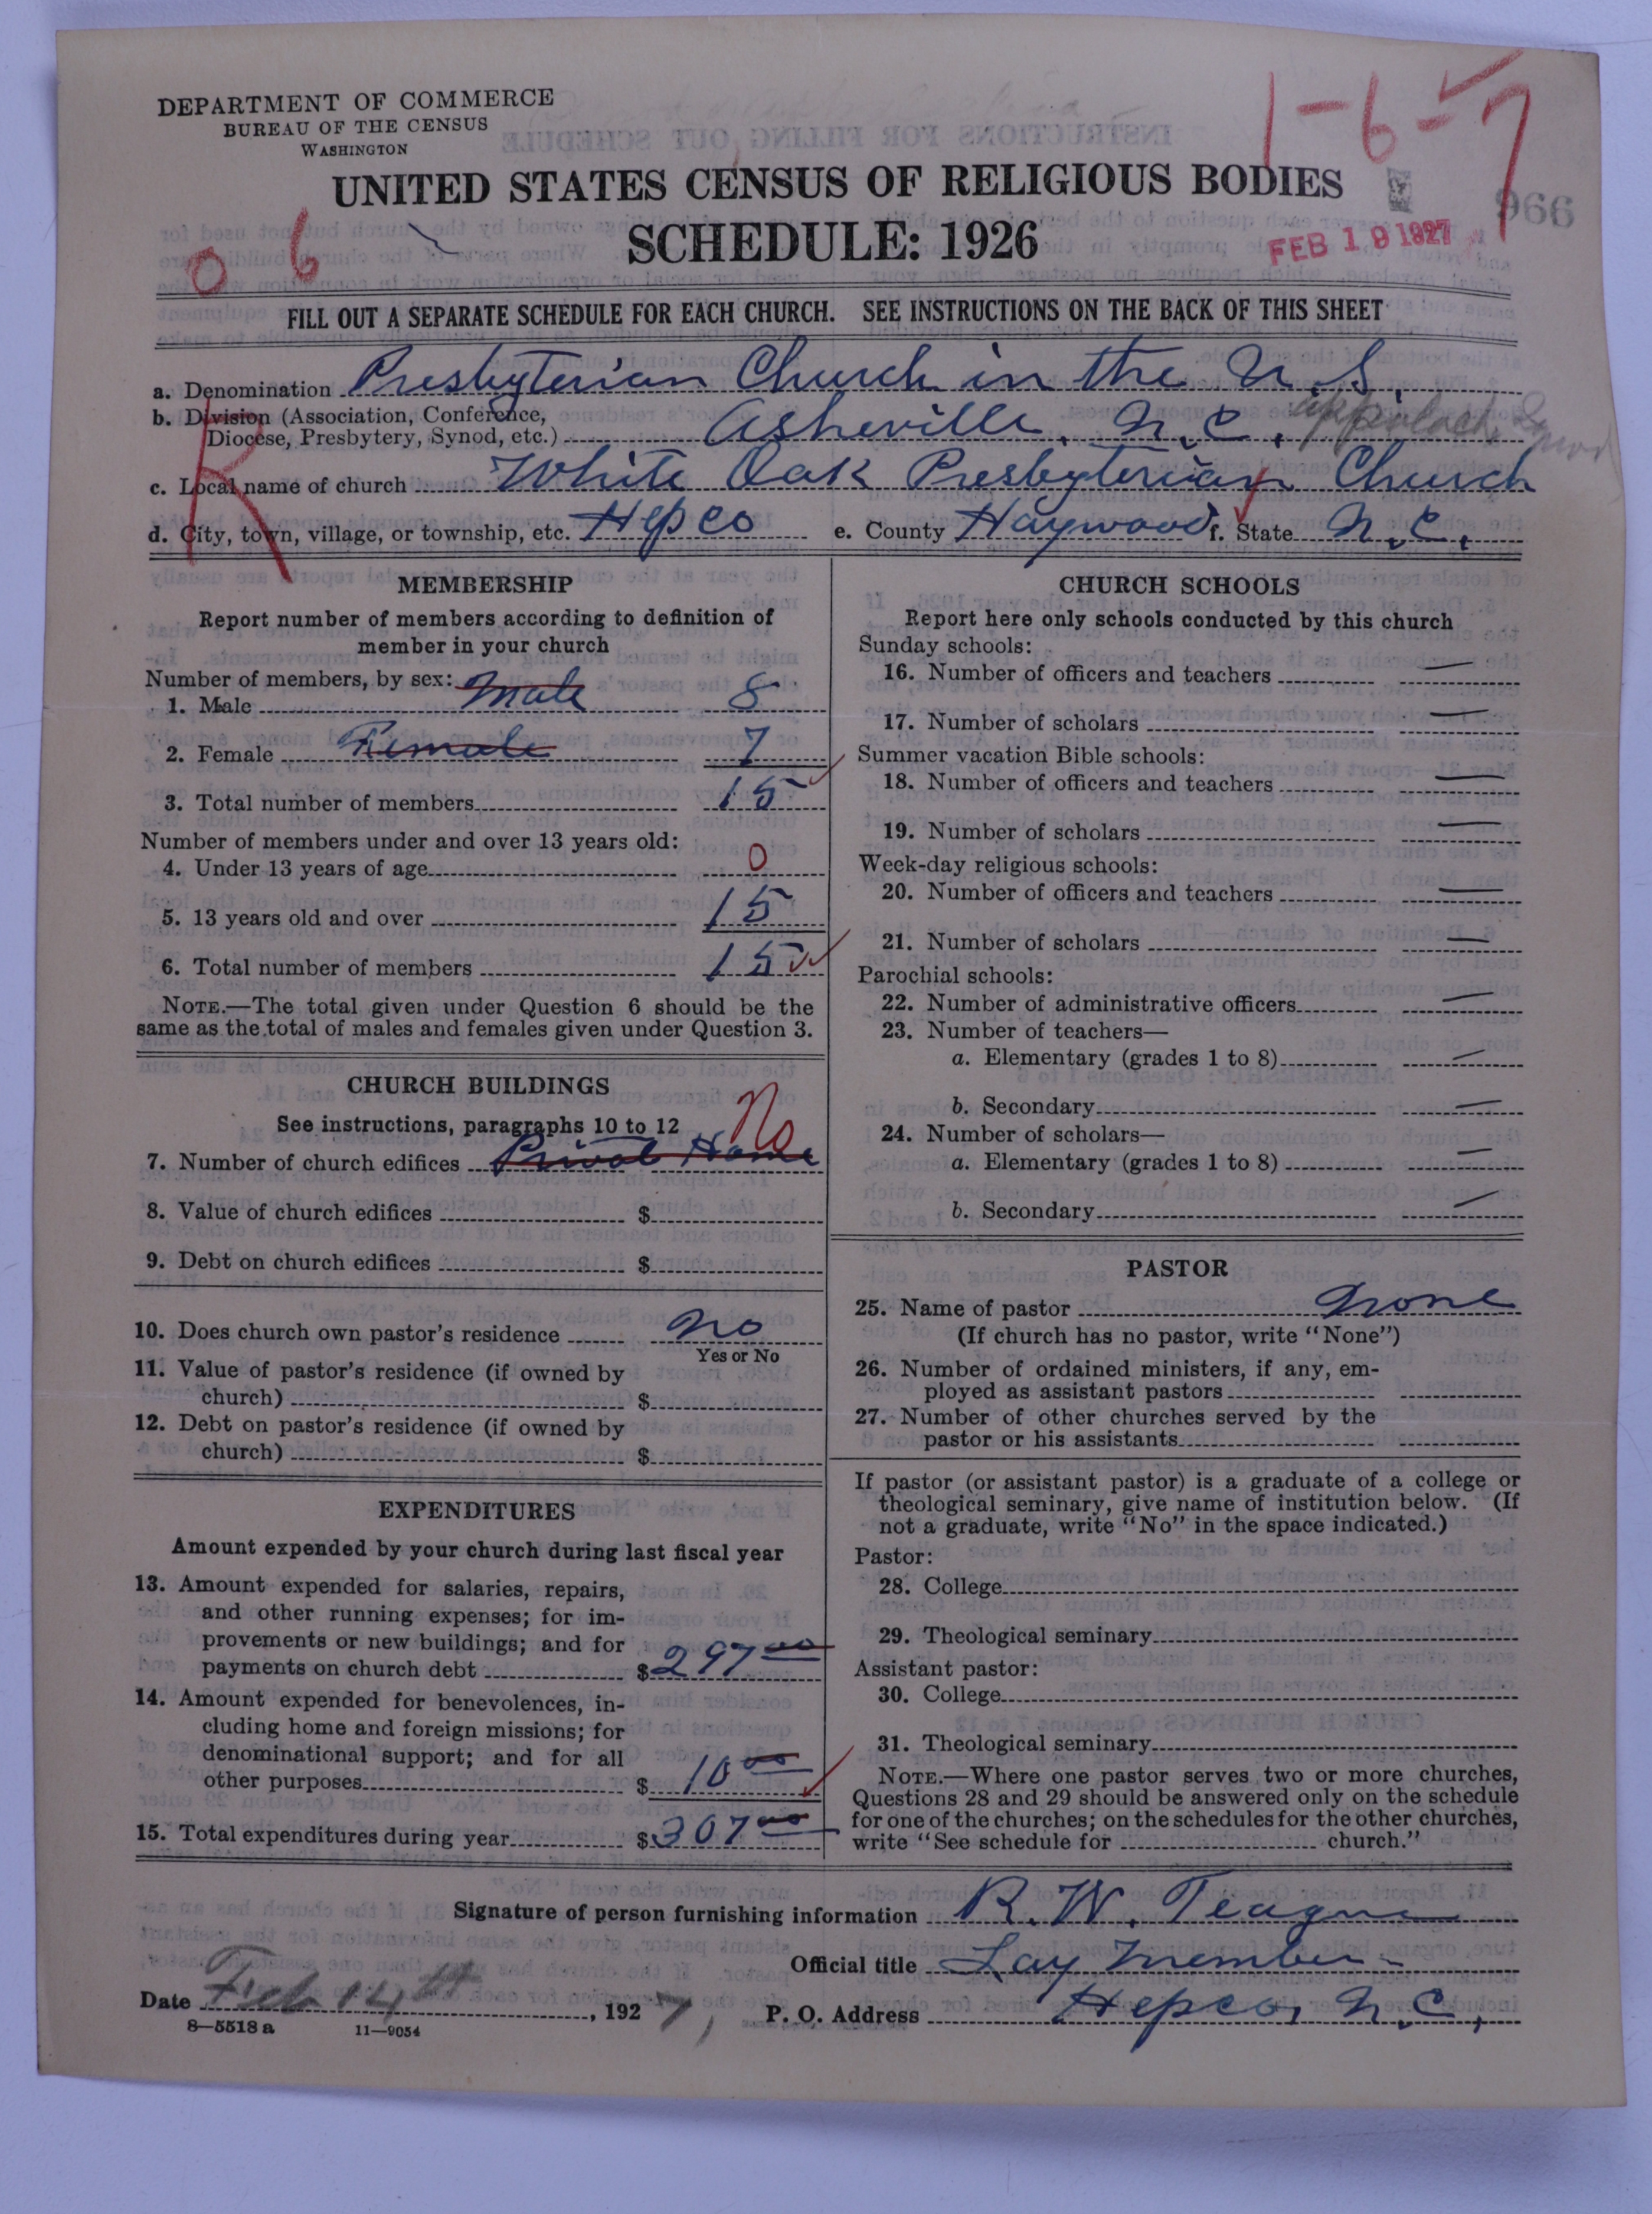 DEPARTMENT OF COMMERCE
BUREAU OF THE CENSUS
WASHINGTON
1-6-7
UNITED STATES CENSUS OF RELIGIOUS BODIES
966
SCHEDULE: 1926
FEB 19 1927
0 6
FILL OUT A SEPARATE SCHEDULE FOR EACH CHURCH. SEE INSTRUCTIONS ON THE BACK OF THIS SHEET
a. Denomination Presbyterian Church in the U.S.
b. Division (Association, Conference,
Diocese, Presbytery, Synod, etc.) Asheville, N.C.
R
c. Local name of church White Oak Presbyterian Church
d. City, town, village, or township, etc. Hepco e. County Haywood f. State N.C.
MEMBERSHIP
Report number of members according to definition of
member in your church
Number of members, by sex:
1. Male Male 8
2. Female Female 7
3. Total number of members 15
Number of members under and over 13 years old:
4. Under 13 years of age 0
5. 13 years old and over 15
6. Total number of members 15
NOTE.—The total given under Question 6 should be the
same as the total of males and females given under Question 3.
CHURCH BUILDINGS
See instructions, paragraphs 10 to 12 No
7. Number of church edifices Privat Home
8. Value of church edifices $
9. Debt on church edifices $
10. Does church own pastor's residence No
Yes or No
11. Value of pastor's residence (if owned by
church) $
12. Debt on pastor's residence (if owned by
church) $
EXPENDITURES
Amount expended by your church during last fiscal year
13. Amount expended for salaries, repairs,
and other running expenses; for im-
provements or new buildings; and for
payments on church debt $297 00
14. Amount expended for benevolences, in-
cluding home and foreign missions; for
denominational support; and for all
other purposes $ 10 00
15. Total expenditures during year $307 00
CHURCH SCHOOLS
Report here only schools conducted by this church
Sunday schools:
16. Number of officers and teachers —
17. Number of scholars —
Summer vacation Bible schools:
18. Number of officers and teachers —
19. Number of scholars —
Week-day religious schools:
20. Number of officers and teachers —
21. Number of scholars —
Parochial schools:
22. Number of administrative officers —
23. Number of teachers—
a. Elementary (grades 1 to 8) —
b. Secondary —
24. Number of scholars—
a. Elementary (grades 1 to 8) —
b. Secondary —
PASTOR
25. Name of pastor None
(If church has no pastor, write "None")
26. Number of ordained ministers, if any, em-
ployed as assistant pastors
27. Number of other churches served by the
pastor or his assistants
If pastor (or assistant pastor) is a graduate of a college or
theological seminary, give name of institution below. (If
not a graduate, write "No" in the space indicated.)
Pastor:
28. College
29. Theological seminary
Assistant pastor:
30. College
31. Theological seminary
NOTE.—Where one pastor serves two or more churches,
Questions 28 and 29 should be answered only on the schedule
for one of the churches; on the schedules for the other churches,
write "See schedule for church."
Signature of person furnishing information R. W. Teague
Official title Lay Member
Date Feb 14th, 1927, P. O. Address Hepco, N.C.
8—5518 a 11—9054